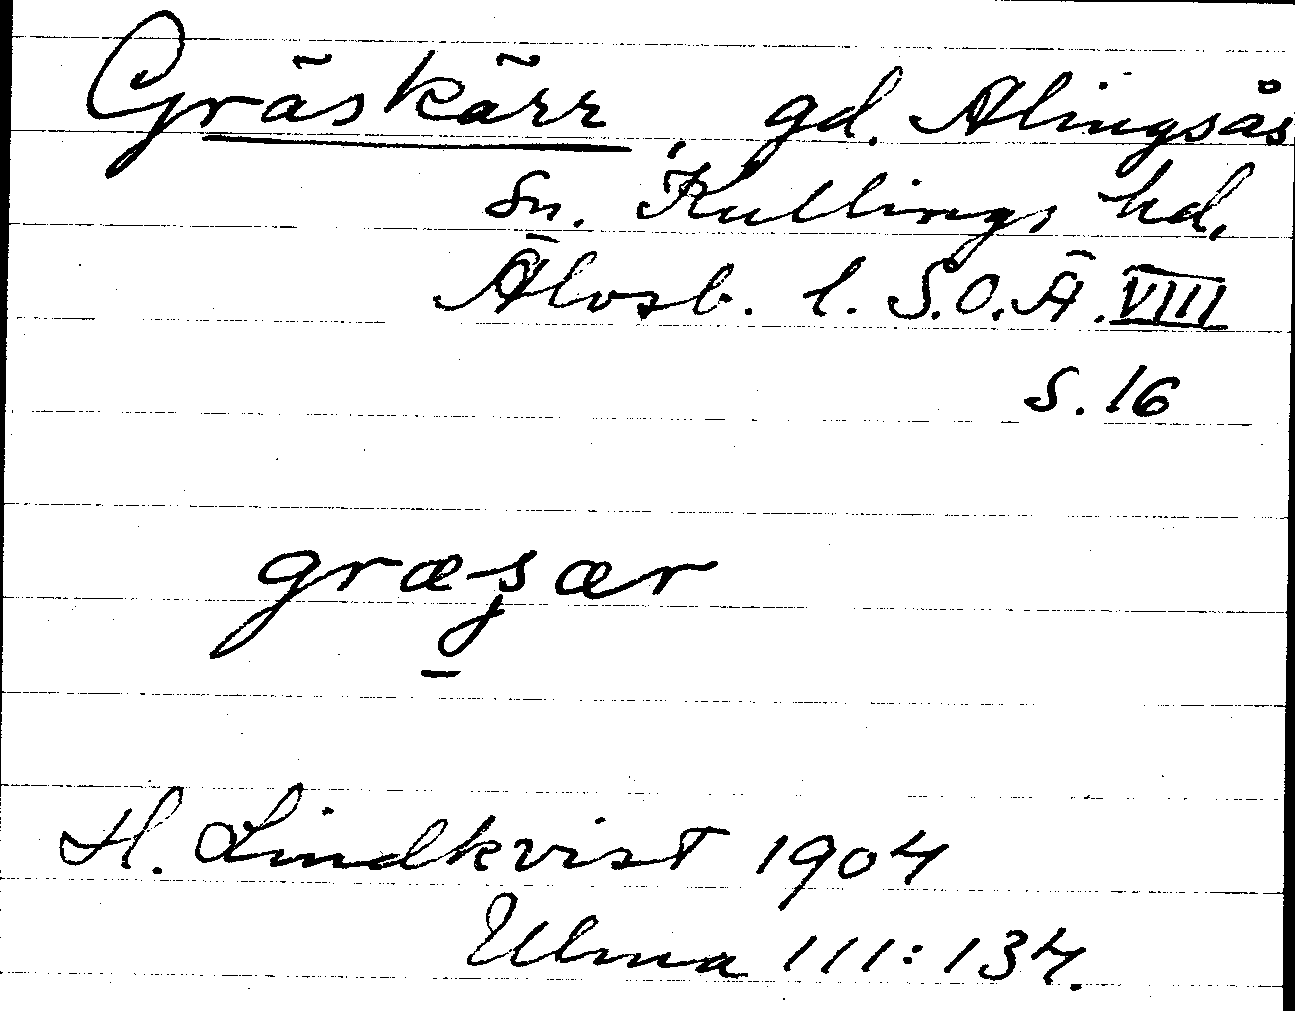 Gräskärr, gd. Alingsås
sn. Kullings hd,
Älvsb. l. S.O.Ä. VIII
S. 16
H. Lindkvist 1904
Ulma 111:134.